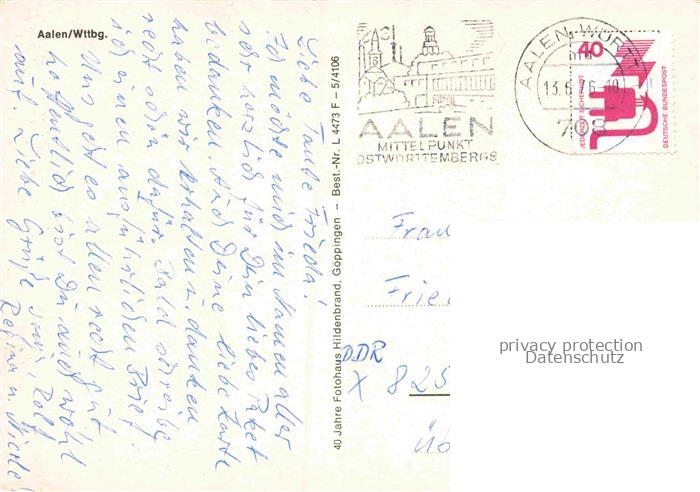 Aalen/Wttbg.
Liebe Tante Frieda!
Ich möchte mich im Namen aller
sehr herzlich für Dein liebes Paket
bedanken. Auch Deine liebe Karte
haben wir erhalten u. danken
recht schön dafür. Bald schreibe
ich einen ausführlichen Brief.
Uns geht es allen recht gut
hoffentlich bist Du auch wohl
auf. Liebe Grüße von Rolf
Regina u. Nicole!
40 Jahre Fotohaus Hildenbrand, Göppingen – Best.-Nr. L 4473 F – 5/4106
AALEN
MITTELPUNKT
OSTWÜRTTEMBERGS
AALEN, WÜRTT
13.6.76
708
40
JEDERZEIT SICHERHEIT
DEUTSCHE BUNDESPOST
Frau
Frie
DDR
X 825
Üb
privacy protection
Datenschutz